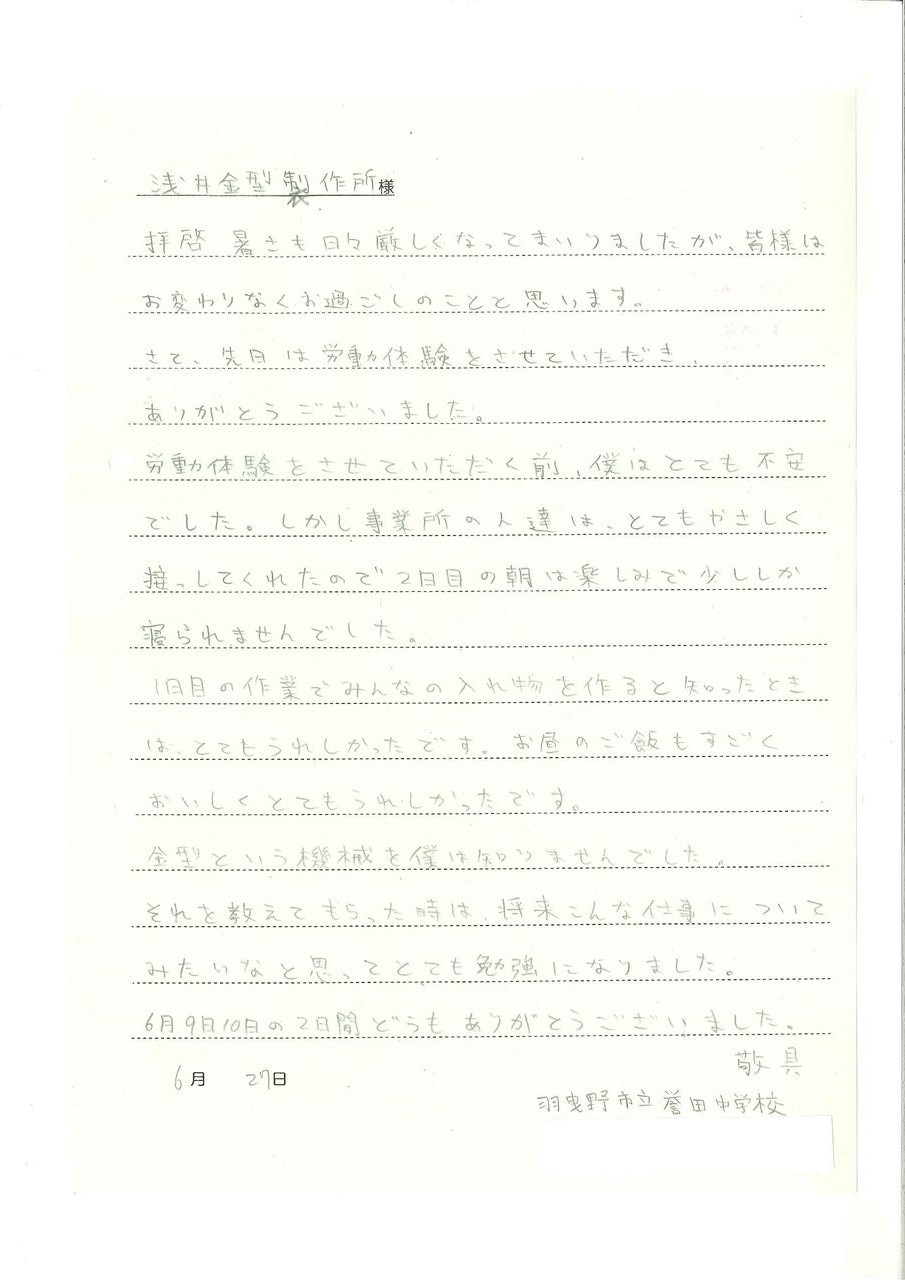 浅井金型製作所様
拝啓 暑さも日々厳しくなってまいりましたが、皆様は
お変わりなくお過ごしのことと思います。
さて、先日は労働体験をさせていただき、
ありがとうございました。
労働体験をさせていただく前、僕はとても不安
でした。しかし事業所の人達は、とてもやさしく
接っしてくれたので2日目の朝は楽しみで少ししか
寝られませんでした。
1日目の作業でみんなの入れ物を作ると知ったとき
は、とてもうれしかったです。お昼のご飯もすごく
おいしくとてもうれしかったです。
金型という機械を僕は知りませんでした。
それを教えてもらった時は、将来こんな仕事について
みたいなと思ってとても勉強になりました。
6月9日10日の2日間どうもありがとうございました。
敬具
6月 27日
羽曳野市立誉田中学校